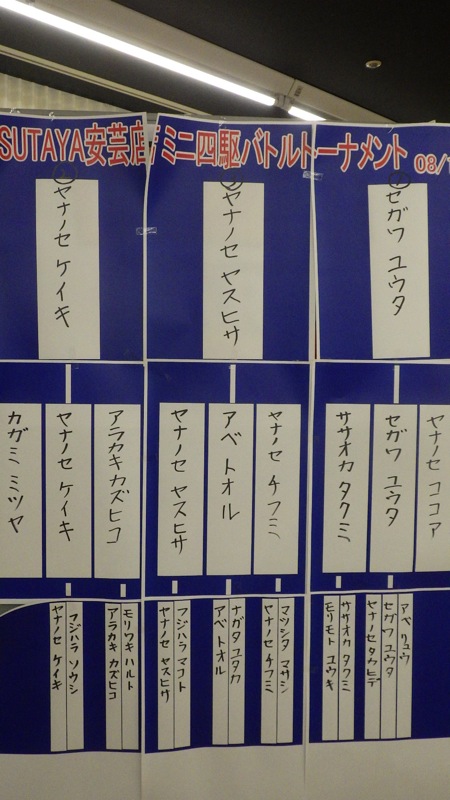 SUTAYA安芸店 ミニ四駆バトルトーナメント 08/
① セガワ ユウタ
② ヤナノセ ヤスヒサ
ヤナノセ ケイキ
ヤナノセ ココア
セガワ ユウタ
ササオカ タクミ
ヤナノセ チフミ
アベ トオル
ヤナノセ ヤスヒサ
アラカキ カズヒコ
ヤナノセ ケイキ
カガミ ミツヤ
アベ リュウ
セガワ ユウタ
ヤナノセ タカヒデ
ササオカ タクミ
モリモト ユウキ
マツシタ マサシ
ヤナノセ チフミ
ナガタ ユタカ
アベ トオル
フジハラ マコト
ヤナノセ ヤスヒサ
モリワキ ハルト
アラカキ カズヒコ
フジハラ ソウシ
ヤナノセ ケイキ